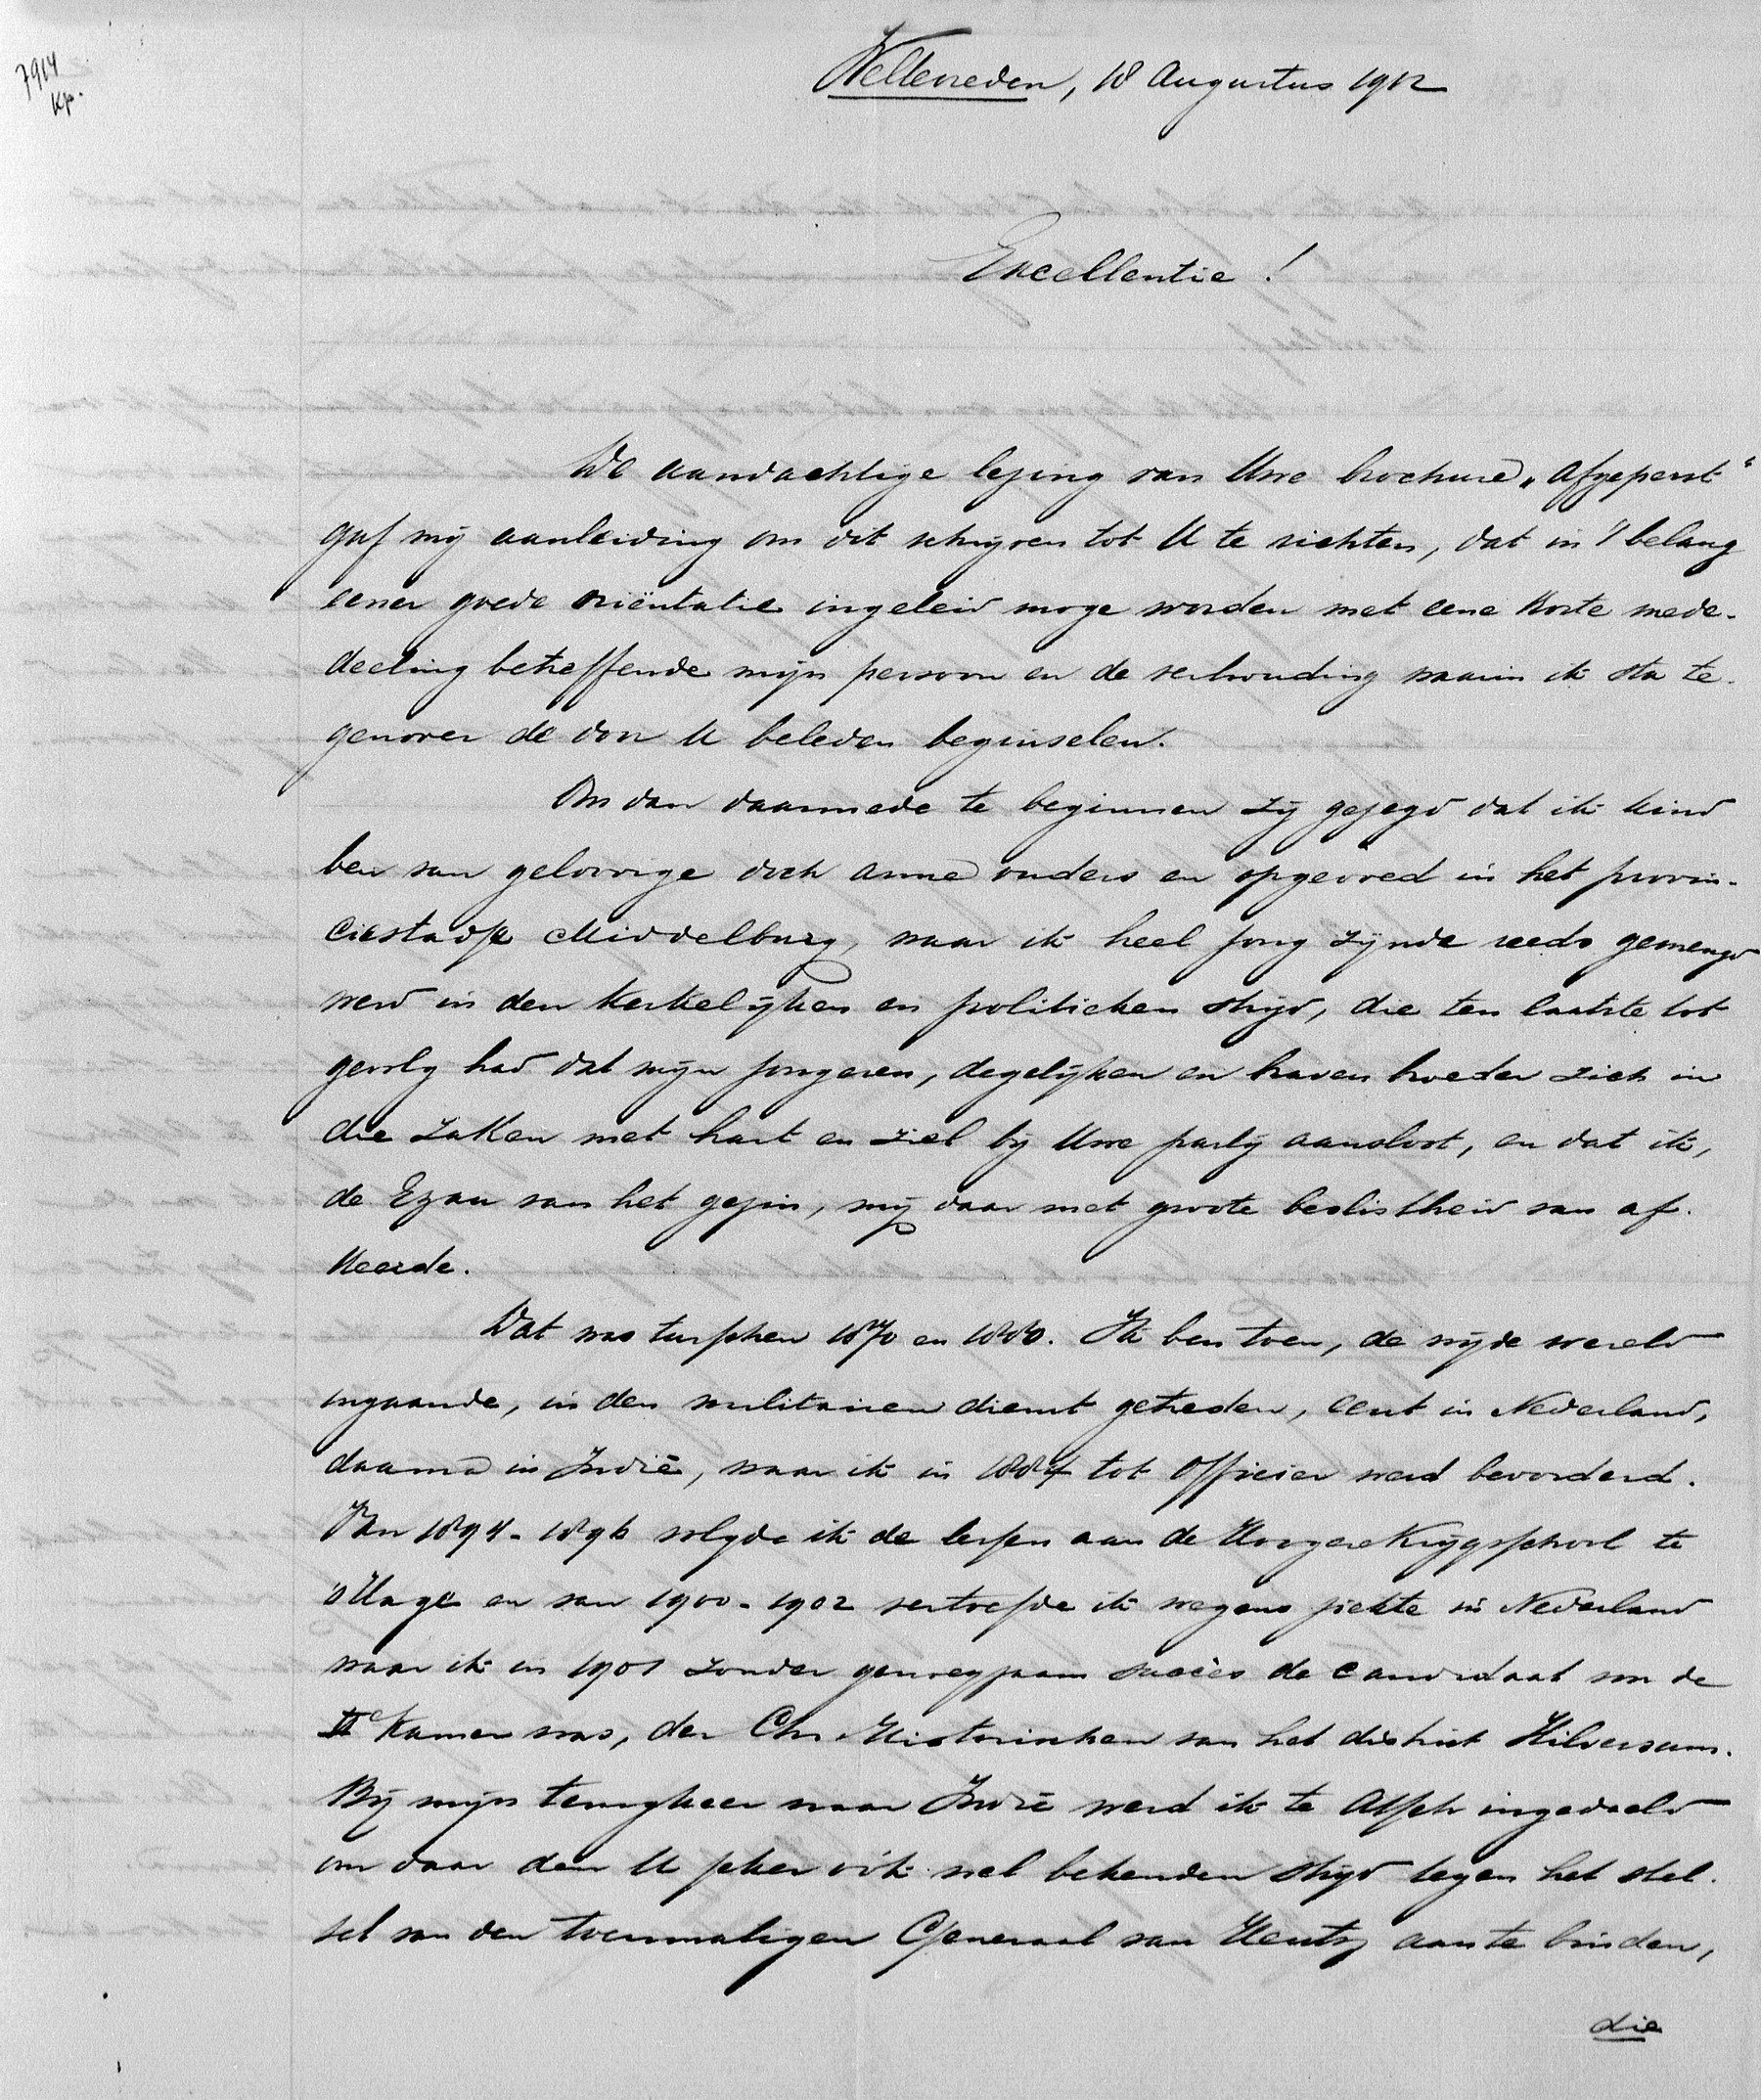 7914
Kp.
Weltevreden, 18 Augustus 1912
Excellentie!
De aandachtige lezing van Uwe brochure „Afgeperst"
gaf mij aanleiding om dit schrijven tot U te richten, dat in 't belang
eener goede oriëntatie ingeleid moge worden met eene korte mede-
deeling betreffende mijn persoon en de verhouding waarin ik sta te-
genover de door U beleden beginselen.
Om dan daarmede te beginnen zij gezegd dat ik kind
ben van geloovige doch arme ouders en opgevoed in het provin-
ciestadje Middelburg, waar ik heel jong zijnde reeds gemengd
werd in den kerkelijken en politieken strijd, die ten laatste tot
gevolg had dat mijn jongeren, degelijken en braven broeder zich in
die zaken met hart en ziel bij Uwe partij aansloot, en dat ik,
de Ezau van het gezin, mij daar met groote beslistheid van af-
keerde.
Dat was tusschen 1870 en 1880. Ik ben toen, de wijde wereld
ingaande, in den militairen dienst getreden, eerst in Nederland,
daarna in Indië, waar ik in 1884 tot officier werd bevorderd.
Van 1894-1896 volgde ik de lessen aan de Hoogere Krijgsschool te
's Hage en van 1900-1902 vertoefde ik wegens ziekte in Nederland
waar ik in 1901 zonder genoegzaam succès de candidaat voor de
IIe Kamer was, der Chr. Historischen van het district Hilversum.
Bij mijn terugkeer naar Indië werd ik te Atjeh ingedeeld
om daar den U zeker ook wel bekenden strijd tegen het stel-
sel van den toenmaligen Generaal van Heutsz aan te binden,
die